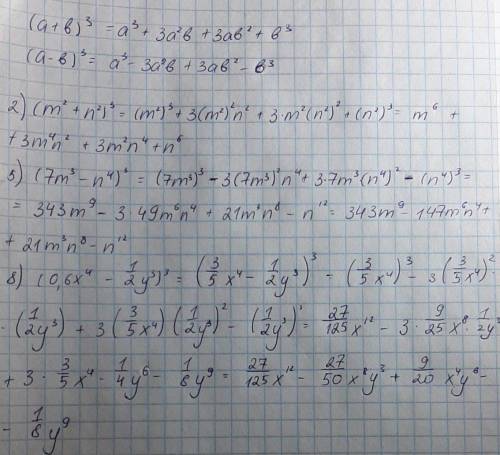 (a+b)³ = a³ + 3a²b + 3ab² + b³
(a-b)³ = a³ - 3a²b + 3ab² - b³
2) (m² + n²)³ = (m²)³ + 3(m²)²n² + 3·m²(n²)² + (n²)³ = m⁶ +
+ 3m⁴n² + 3m²n⁴ + n⁶
5) (7m³ - n⁴)³ = (7m³)³ - 3(7m³)²n⁴ + 3·7m³(n⁴)² - (n⁴)³ =
= 343m⁹ - 3·49m⁶n⁴ + 21m³n⁸ - n¹² = 343m⁹ - 147m⁶n⁴ +
+ 21m³n⁸ - n¹²
8) (0,6x⁴ - 1/2y³)³ = (3/5x⁴ - 1/2y³)³ - (3/5x⁴)³ - 3(3/5x⁴)²
·(1/2y³) + 3(3/5x⁴)(1/2y³)² - (1/2y³)³ = 27/125x¹² - 3·9/25x⁸·1/2y³
+ 3·3/5x⁴ - 1/4y⁶ - 1/8y⁹ = 27/125x¹² - 27/50x⁸y³ + 9/20x⁴y⁶ -
- 1/8y⁹